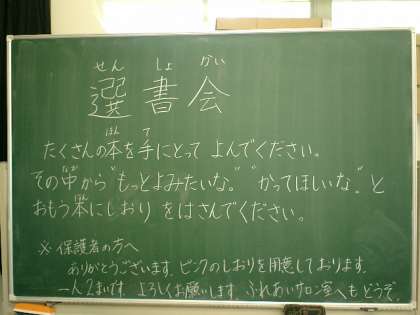 せんしょかい
選書会
ほん て
たくさんの本を手にとって よんでください。
なか
その中から"もっとよみたいな。""かってほしいな。"と
おもう本にしおりをはさんでください。
※ 保護者の方へ
ありがとうございます。ピンクのしおりを用意しております。
一人2まいです。よろしくお願いします。ふれあいサロン室へもどうぞ。